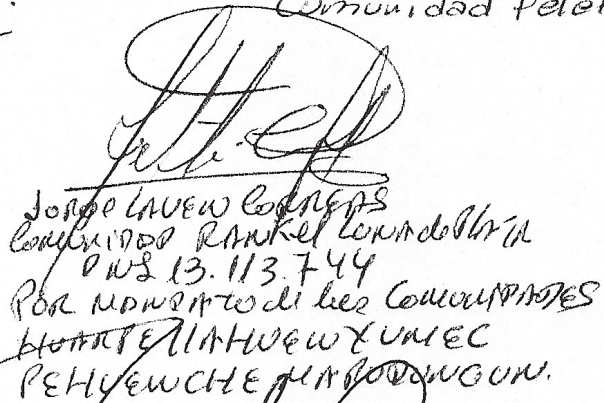 Comunidad Pele
JORGE LAUEW CORREAS
COMUNIDAD RANKEL LONA de PLATA
DNI 13.113.744
POR MANDATO de las COMUNIDADES
HUARPE LLAHUEW XUMEC
PEHUEWCHE MAPUDUNGUN.